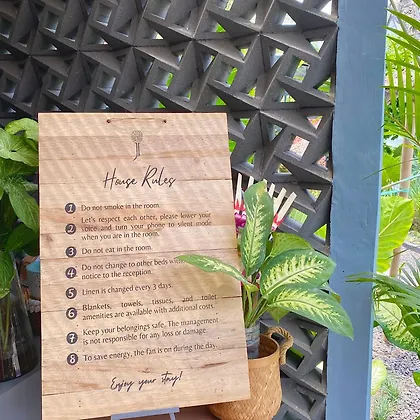 House Rules
1 Do not smoke in the room.
2 Let's respect each other, please lower your
voice and turn your phone to silent mode
when you are in the room.
3 Do not eat in the room.
4 Do not change to other beds
notice to the reception.
5 Linen is changed every 3 days.
6 Blankets, towels, tissues, and toilet
amenities are available with additional costs.
7 Keep your belongings safe. The management
is not responsible for any loss or damage.
8 To save energy, the fan is on during the day.
Enjoy your stay!